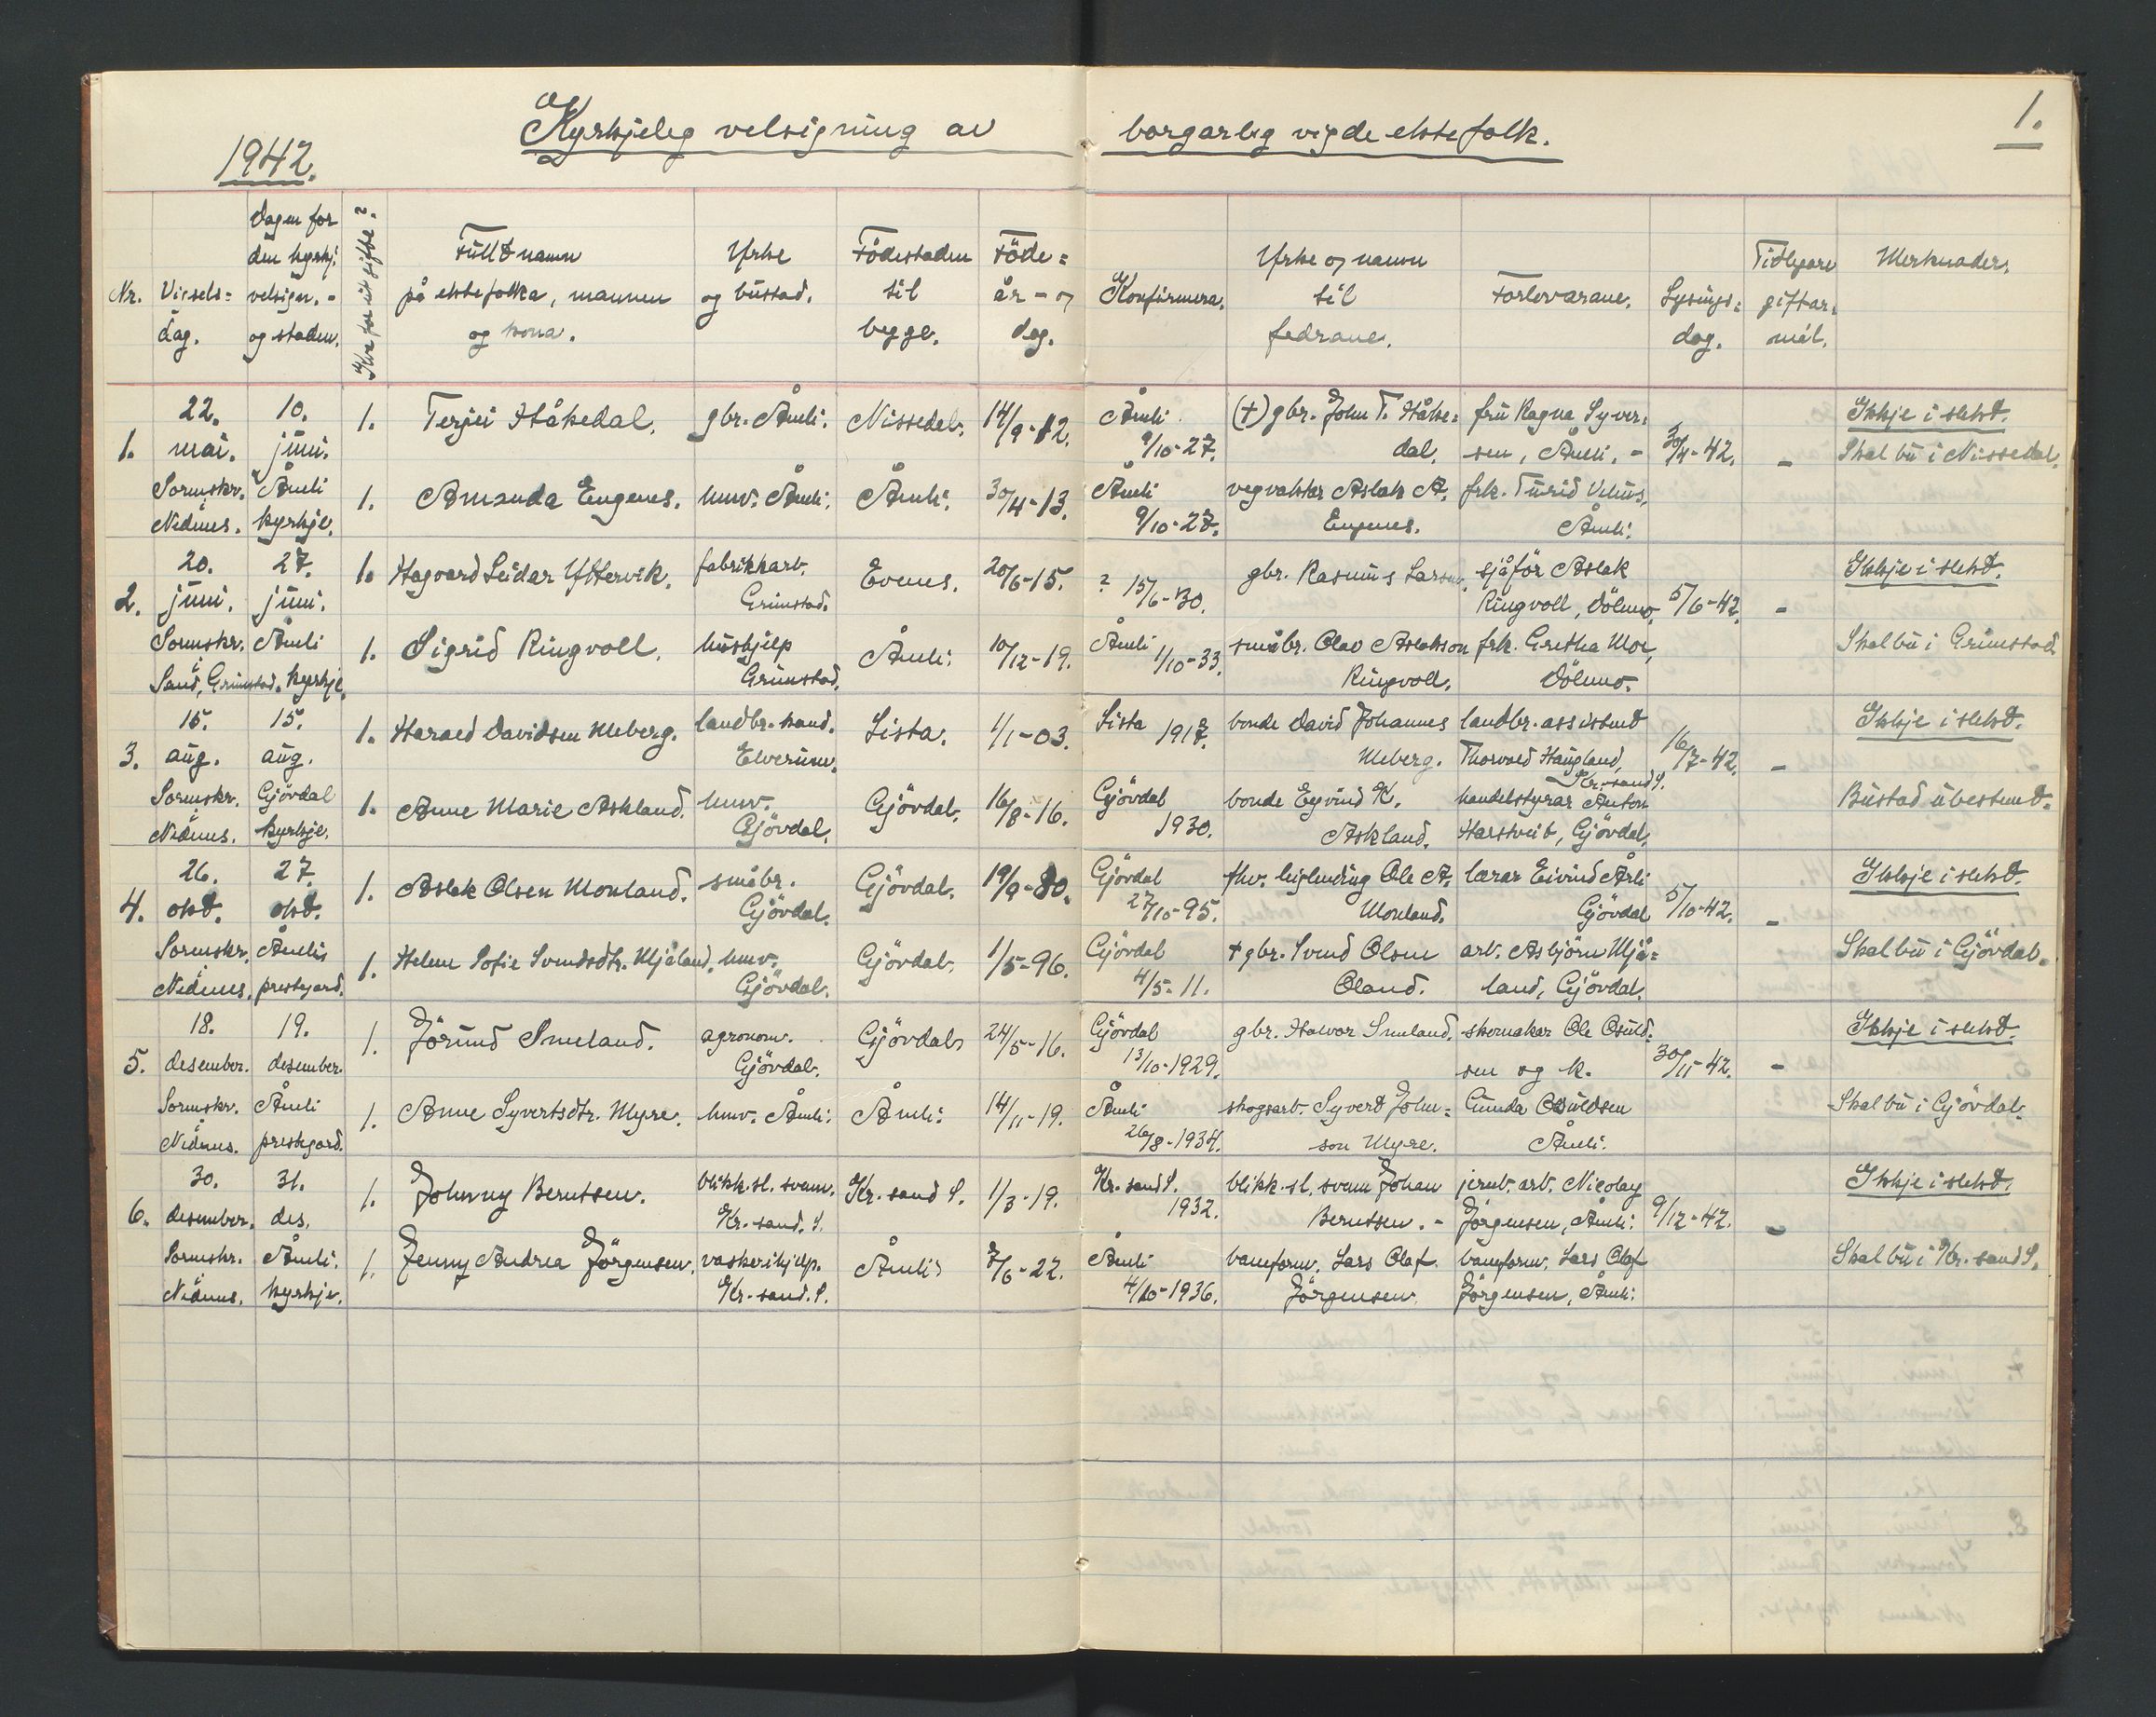 Kyrkjeleg velsigning av borgarleg vigde ektefolk.
1.
1942.
Nr.
Vigsels=
dag.
Dagen for
den kyrkj.
velsign. -
og staden.
Kva for eit gifte?
Fullt namn
på ektefolka, mannen
og kona.
Yrke
og bustad.
Födestaden
til
begge.
Föde=
år - og
dag.
Konfirmera.
Yrke og namn
til
fedrane.
Forlovarane.
Lysings=
dag.
Tidlegare
giftar=
mål.
Merknader.
1.
22.
mai.
Sornskr.
Nednes.
10.
juni.
Åmli
kyrkje.
1. Terjei Håkedal. gbr. Åmli. Nissedal. 14/9-12.
Åmli
9/10-27.
(+) gbr. John T. Håke=
dal.
fru Ragna Syver=
sen, Åmli. -
30/4-42.
-
Ikkje i slekt.
Skal bu i Nissedal.
1. Amanda Eugenes. huv. Åmli. Åmli. 30/4-13.
Åmli
9/10-27.
vegvaktar Aslak A.
Eugenes.
frk. Turid Vehus,
Åmli.
2.
20.
juni.
Sornskr.
Sand, Grimstad.
27.
juni.
Åmli
kyrkje.
1. Hagvard Leidar Yttervik.
fabrikkarb.
Grimstad.
Evenes. 20/6-15.
? 15/6-30.
gbr. Rasmus Larsen.
sjåför Aslak
Ringvoll, Dölmo.
5/6-42.
-
Ikkje i slekt.
1. Sigrid Ringvoll.
hushjelp
Grimstad.
Åmli. 10/12-19.
Åmli 1/10-33.
småbr. Olav Aslakson
Ringvoll.
frk. Gretha Moe,
Dölmo.
Skal bu i Grimstad
3.
15.
aug.
Sornskr.
Nednes.
15.
aug.
Gjövdal
kyrkje.
1. Harald Davidsen Meberg.
landbr. kand.
Elverum.
Lista. 1/1-03.
Lista 1917.
bonde David Johannes
Meberg.
landbr. assistent
Thorvald Haugland,
Kr.-sand S.
16/7-42.
-
Ikkje i slekt.
1. Anne Marie Askland.
huv.
Gjövdal.
Gjövdal. 16/8-16.
Gjövdal
1930.
bonde Eyvind K.
Askland.
handelstyrar Anton
Harstveit, Gjövdal.
Bustad ubestemt.
4.
26.
okt.
Sornskr.
Nednes.
27.
okt.
Åmli
prestegard.
1. Aslak Olsen Monland.
småbr.
Gjövdal.
Gjövdal. 19/9-80.
Gjövdal
27/10-95.
fhv. leiglending Ole A.
Monland.
lærar Eivind Årli
Gjövdal
5/10-42.
-
Ikkje i slekt.
1. Helene Sofie Svendsdtr. Mjåland.
huv.
Gjövdal.
Gjövdal. 1/5-96.
Gjövdal
4/5-11.
+ gbr. Svend Olsen
Öland.
arb. Asbjörn Mjå=
land, Gjövdal.
Skal bu i Gjövdal.
5.
18.
desember.
Sornskr.
Nednes.
19.
desember.
Åmli
prestegard.
1. Jörund Smeland.
agronom.
Gjövdal.
Gjövdal. 24/5-16.
Gjövdal
13/10-1929.
gbr. Halvor Smeland.
skomakar Ole Osuld=
sen og k.
30/11-42.
-
Ikkje i slekt.
1. Anne Syvertsdtr. Myre. huv. Åmli. Åmli. 14/11-19.
Åmli
26/8-1934.
skogsarb. Syvert John=
son Myre.
Gunda Osuldsen
Åmli.
Skal bu i Gjövdal.
6.
30.
desember.
Sornskr.
Nednes.
31.
des.
Åmli.
kyrkje.
1. Johnny Berntsen.
blikk. sl. svenn.
Kr.-sand. S.
Kr. sand S. 1/3-19.
Kr. sand S.
1932.
blikk. sl. svenn Johan
Berntsen. -
jernb. arb. Nicolay
Jörgensen, Åmli.
9/12-42.
-
Ikkje i slekt.
1. Jenny Andrea Jörgensen.
vaskerihjelp.
Kr.-sand. S.
Åmli. 7/6-22.
Åmli
4/10-1936.
baneform. Lars Olaf
Jörgensen.
baneform. Lars Olaf
Jörgensen, Åmli.
Skal bu i Kr.-sand S.